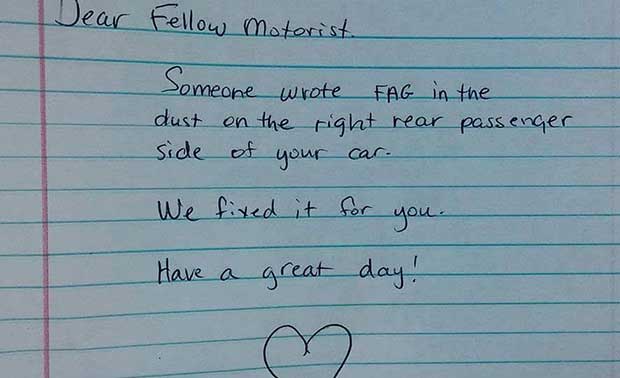 Dear Fellow Motorist.
Someone wrote FAG in the
dust on the right rear passenger
side of your car.
We fixed it for you.
Have a great day!